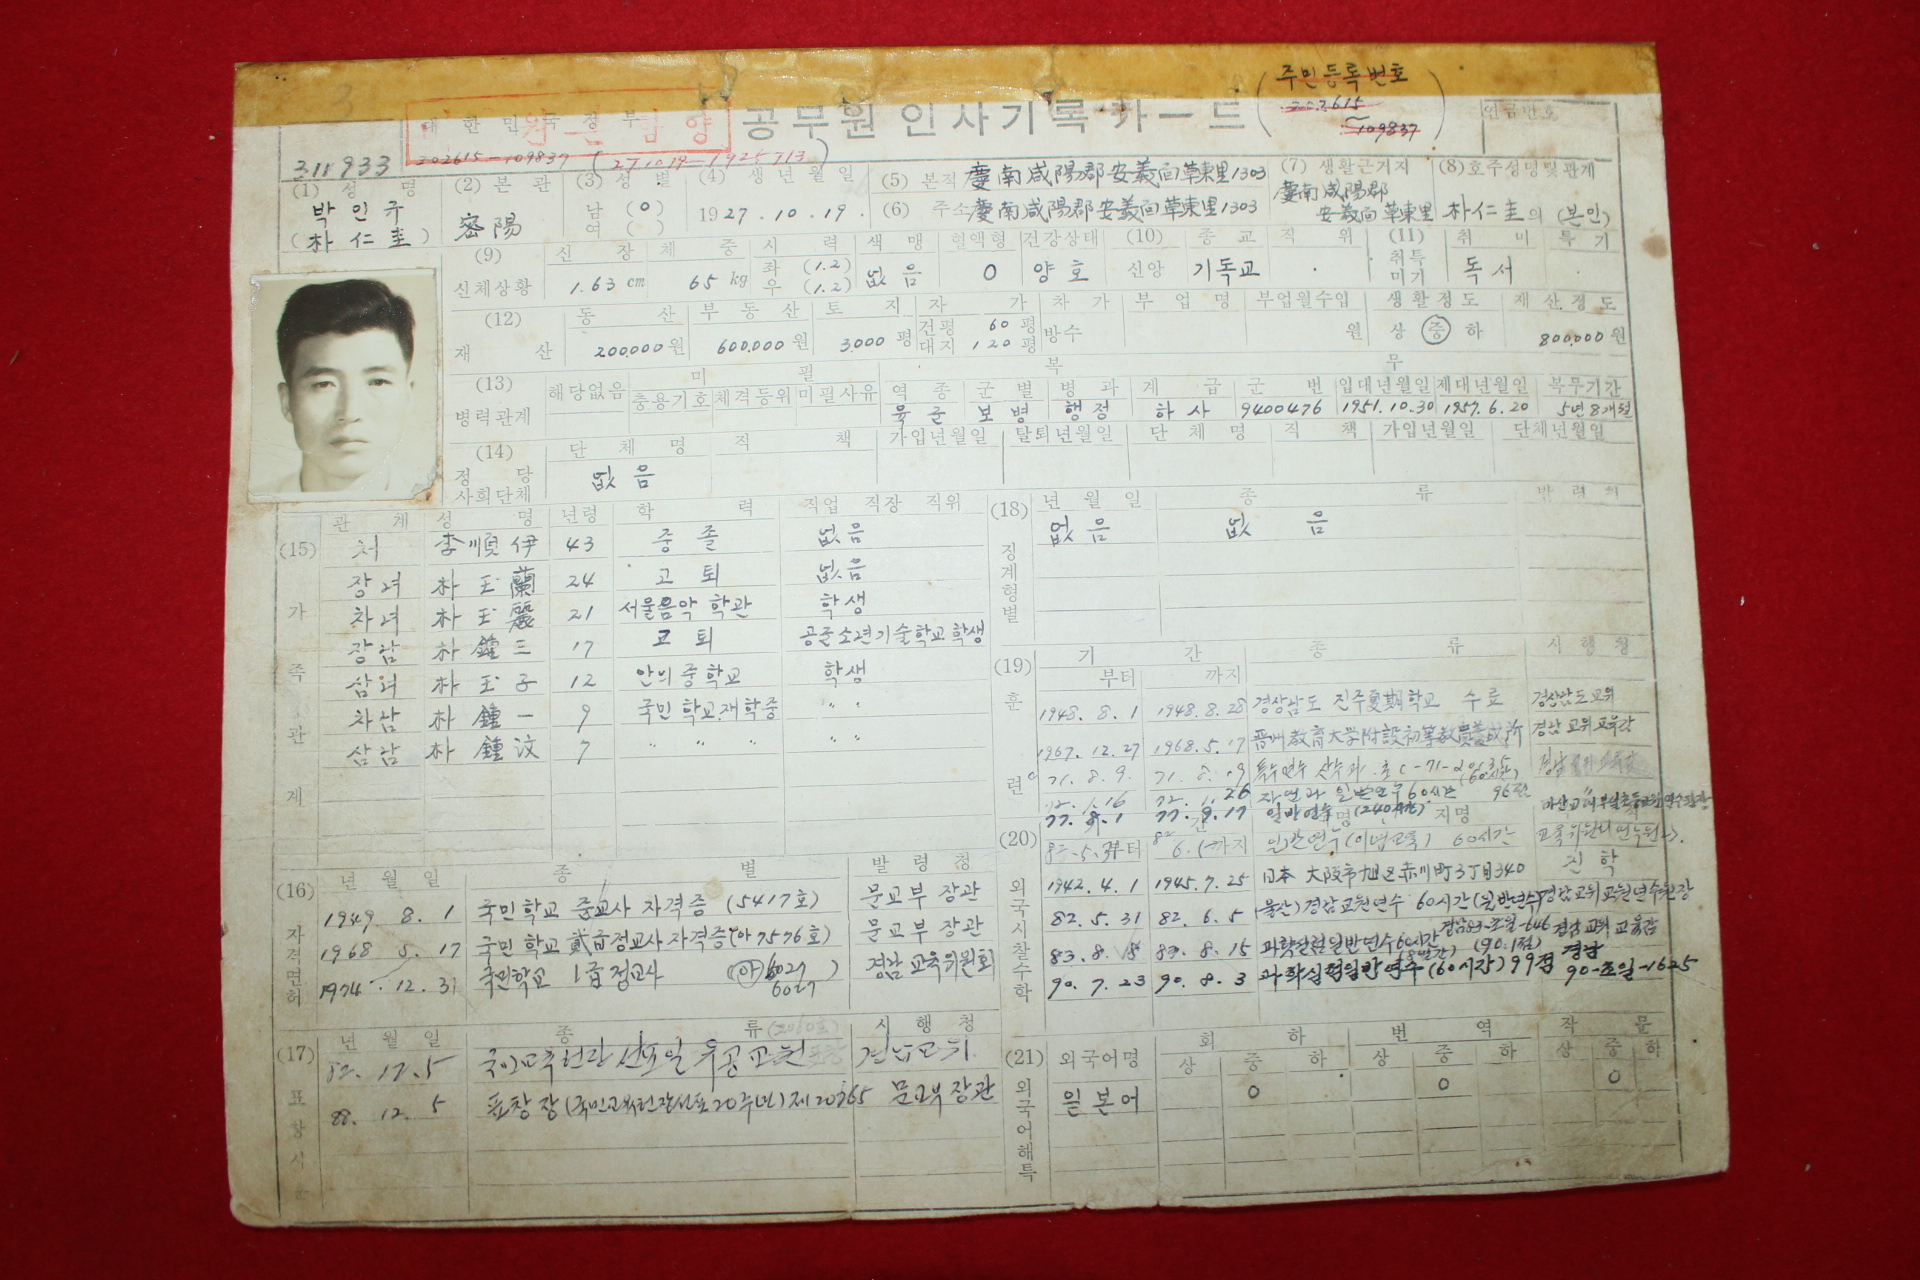 주민등록번호
202615
~109837
대한민국정부
공무원 인사기록카드
연금번호
311933
202615-109837 (271019-1925713)
(1) 성 명
(2) 본 관
(3) 성 별
(4) 생 년 월 일
(5) 본적 慶南咸陽郡安義面草東里1303
(7) 생활근거지
(8) 호주성명및관계
박인규
(朴仁圭)
密陽
남 (O)
여 ( )
1927.10.19.
(6) 주소 慶南咸陽郡安義面草東里1303
慶南咸陽郡
安義面草東里
朴仁圭의 (본인)
(9) 신 장 체 중 시 력 색 맹 혈액형 건강상태 (10) 종 교 직 위 (11) 취 미 특 기
신체상황 1.63 cm 65 kg 좌 (1.2) 우 (1.2) 없음 O 양호 신앙 기독교 . 취득 미기 독서
(12) 동 산 부 동 산 토 지 자 가 차 가 부 업 명 부업월수입 생활정도 재산정도
재 산 200,000원 600,000원 3,000평 건평 60평 대지 120평 방수 원 상 중 하 800,000원
(13) 미 필 복 무
병력관계 해당없음 충용기호 체격등위 미필사유 역 종 군 별 병 과 계 급 군 번 입대년월일 제대년월일 복무기간
육군 보병 행정 하사 9400476 1951.10.30 1957.6.20 5년8개월
(14) 단 체 명 직 책 가입년월일 탈퇴년월일 단 체 명 직 책 가입년월일 단체년월일
정 당
사회단체 없음
(15) 가 족 관 계
관 계 성 명 년령 학 력 직업 직장 직위
처 李順伊 43 중졸 없음
장녀 朴玉蘭 24 고퇴 없음
차녀 朴玉麗 21 서울음악학관 학생
장남 朴鍾三 17 고퇴 공군소년기술학교학생
삼녀 朴玉子 12 안의중학교 학생
차남 朴鍾一 9 국민학교재학중 〃 〃
삼남 朴鍾汶 7 〃 〃 〃 〃 〃
(16) 자격면허
년 월 일 종 별 발 령 청
1949 8. 1 국민학교 준교사 자격증 (5417호) 문교부장관
1968 5. 17 국민학교 貳급정교사자격증(아7576호) 문교부장관
1974. 12. 31 국민학교 1급정교사 (아6027) 6027 경남교육위원회
(17) 표창
년 월 일 종 류 시 행 청
82. 12. 5 국민교육헌장 선포일 유공교원 경남교위
88. 12. 5 표창장(국민교육헌장선포20주년) 문교부장관
(18) 징계형벌
년 월 일 종 류
없음 없음
(19) 훈 련
기 간 종 류 시 행 청
부터 까지
1948. 8. 1 1948. 8. 28 경상남도 진주夏期학교 수료 경상남도교위
1967. 12. 27 1968. 5. 17 晋州教育大学附設初等教員養成所 경남교위교육감
71. 8. 9. 71. 8. 19
72. 1. 16 72. 1. 26 자연과 일반연수60시간
77. 8. 1 77. 9. 17 일반연수 (240시간)
(20) 외국시찰수학
부터 까지 60시간
1942. 4. 1 1945. 7. 25 日本 大阪市旭区赤川町3丁目340 진학
82. 5. 31 82. 6. 5 (울산)경남교원연수 60시간(일반연수) 경남교위교원연수원장
83. 8. 8 83. 8. 15 과학실험일반연수60시간 (90.1점) 경남교위교육감
90. 7. 23 90. 8. 3 과학실험일반연수(60시간)99점 경남 90-초일-1625
(21) 외국어해득
외국어명 회 하 번 역 작 문
상 중 하 상 중 하 상 중 하
일본어 O O O